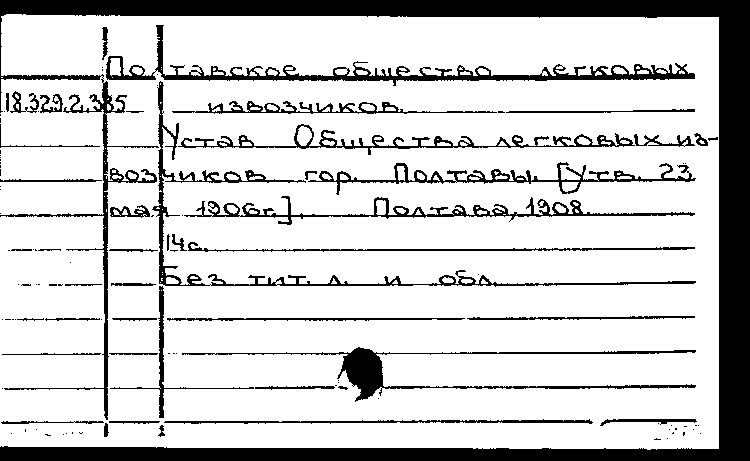 Полтавское общество легковых
18.329.2.385 извозчиков.
Устав Общества легковых из-
возчиков гор. Полтавы. [Утв. 23
мая 1906г.]. Полтава, 1908.
14с.
Без тит. л. и обл.